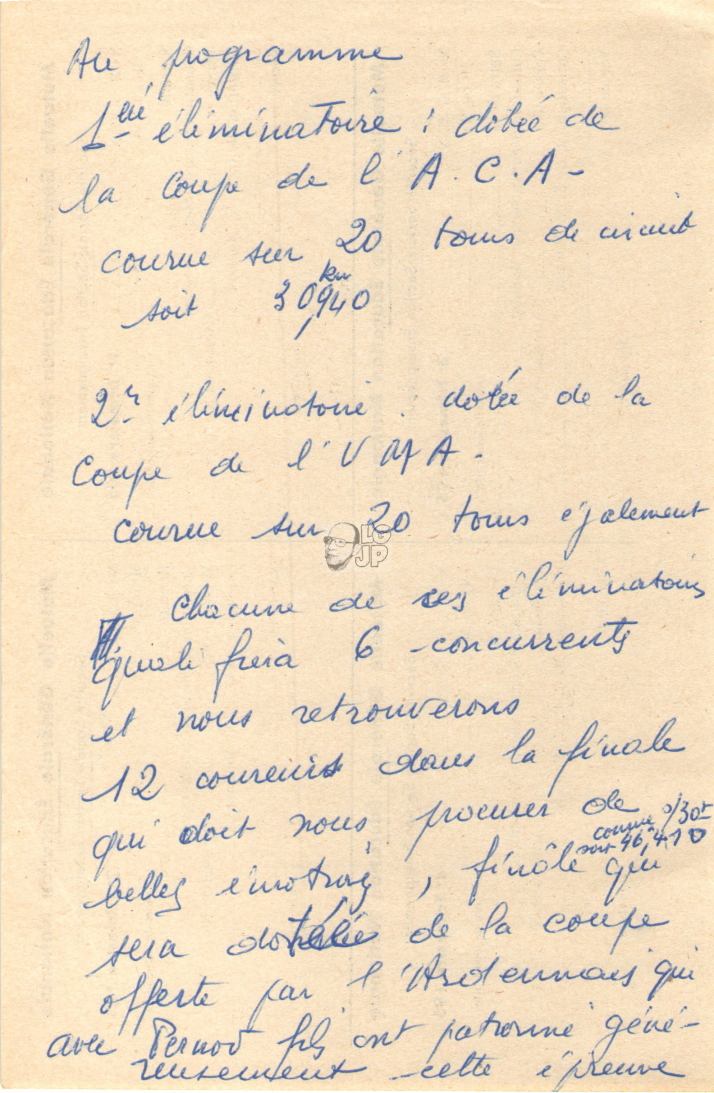 Au programme
1ère éliminatoire : dotée de
la coupe de l'A.C.A -
courue sur 20 tours de circuit
km
soit 30,940
2e éliminatoire . dotée de la
Coupe de l'U M A -
courue sur 20 tours également
LG
JP
Chacune de ces éliminatoires
qualifiera 6 concurrents
et nous retrouverons
12 coureurs dans la finale
qui doit nous procurer de
courue s/30t
soit 46,410
belles émotions, finale qui
sera dotée de la coupe
offerte par l'Ardennais qui
avec Pernod fils ont patronné géné-
reusement cette épreuve